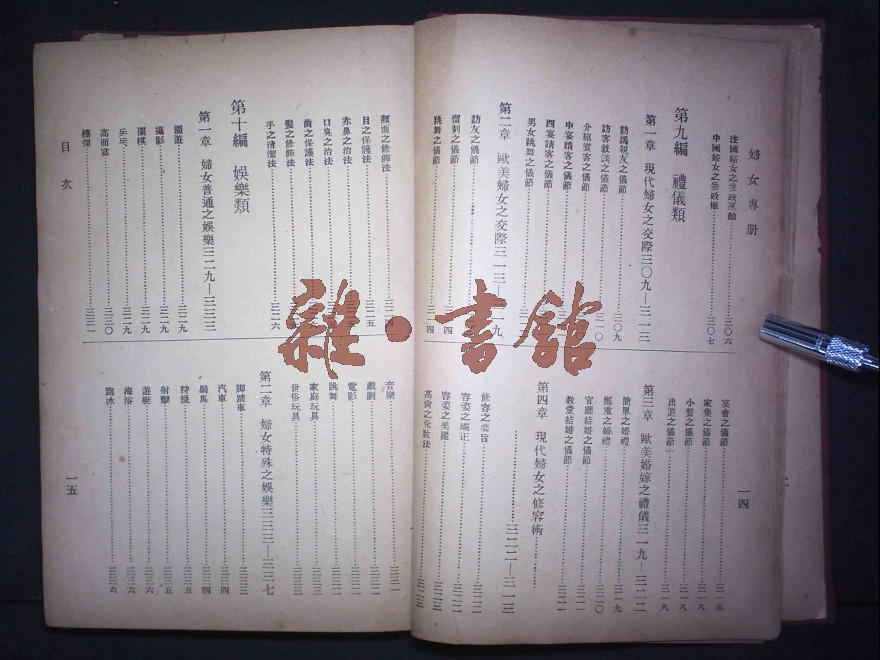 婦女專册
一四
法國婦女之參政運動……三〇六
中國婦女之參政權……三〇七
第九編 禮儀類
第一章 現代婦女之交際三〇九—三一三
訪謁親友之儀節……三〇九
訪客敘談之儀節……三一〇
介紹賓客之儀節
中宴請客之儀節
西宴請客之儀節
男女跳舞之儀節
第二章 歐美婦女之交際三一三—三一九
訪友之儀節
留刺之儀節
跳舞之儀節……三一四
宴會之儀節……三一五
家集之儀節……三一八
小餐之儀節……三一八
出遊之儀節……三一八
第三章 歐美婚嫁之禮儀三一九—三二二
簡單之婚禮……三一九
鄭重之婚禮……三二〇
官廳結婚之儀節……三二一
教堂結婚之儀節……三二一
第四章 現代婦女之修容術
……三二二—三一三
修容之要旨……三二二
容姿之端正……三二二
容姿之美麗……三二二
高尚之化妝法……三二三
顏面之修飾法……三二四
目之保護法……三二五
赤鼻之治法
口臭之治法
齒之保護法
髮之修飾法
手之清潔法……三二六
第十編 娛樂類
第一章 婦女普通之娛樂三二九—三三三
園遊……三二九
攝影……三二九
圍棋……三二九
乒乓……三二九
高而富……三三〇
檯彈……三三一
音樂……三三一
戲劇……三三二
電影……三三二
跳舞……三三二
家庭玩具……三三三
世俗玩具……三三三
第二章 婦女特殊之娛樂三三三—三三七
脚踏車……三三三
汽車……三三四
騎馬……三三四
狩獵……三三五
射擊……三三五
遊艇……三三六
海浴……三三六
溜冰……三三六
目次
一五
雜·書館